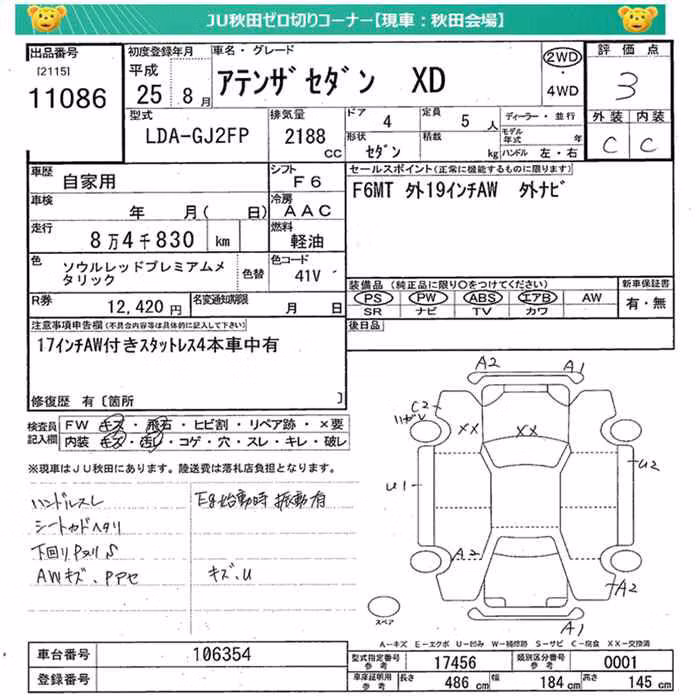 JU秋田ゼロ切りコーナー【現車：秋田会場】
出品番号
[2115]
11086
初度登録年月
平成
25 8月
車名・グレード
アテンザセダン XD
2WD
・
4WD
評価点
3
外装 内装
C C
型式
LDA-GJ2FP
排気量
2188
CC
ドア 4
定員 5 人
形状 セダン
積載 kg
ディーラー・並行
モデル年式 年
ハンドル 左・右
車歴 自家用
シフト F6
車検 年 月( 日)
冷房 AAC
走行 8万4千830 km
燃料 軽油
色 ソウルレッドプレミアムメタリック
色替
色コード 41V
R券 12,420円
名変通知期限 月 日
セールスポイント(正常に機能するものに限ります)
F6MT 外19インチAW 外ナビ
装備品(純正品に限り○をつけてください)
PS PW ABS エアB AW
SR ナビ TV カワ
新車保証書
有・無
後日品
注意事項申告欄(不具合内容等は具体的に記入して下さい)
17インチAW付きスタットレス4本車中有
修復歴 有〔箇所 〕
検査員記入欄
FW キズ・飛石・ヒビ割・リペア跡・×要
内装 キズ・汚レ・コゲ・穴・スレ・キレ・破レ
※現車はJU秋田にあります。陸送費は落札店負担となります。
ハンドルスレ
Eg始動時 振動有
シートカドヘタリ
下回りPヌリ S
AWキズ、Pアセ
キズ、U
A2 A1
C2
XX XX
U1 U2
A2 A2
A1
スペア
A－キズ E－エクボ U－凹み W－補修跡 S－サビ C－腐食 XX－交換済
車台番号 106354
登録番号
型式指定番号参考 17456
類別区分番号参考 0001
車庫証明用参考
長さ 486 cm
幅 184 cm
高さ 145 cm